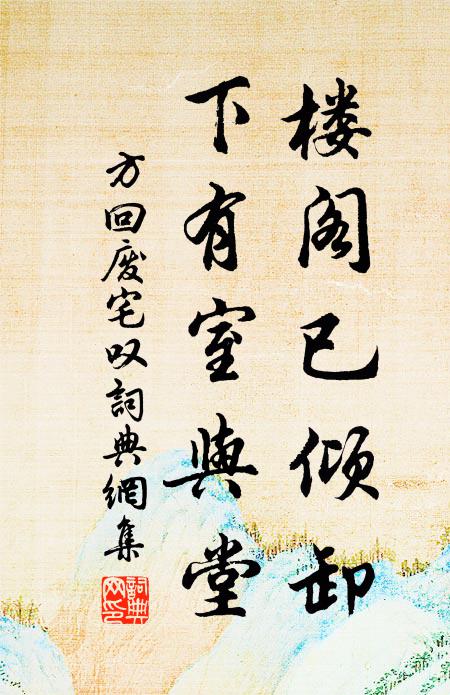 楼阁已倾卸
下有室與堂
方回废宅叹詞典網集
詞典網印